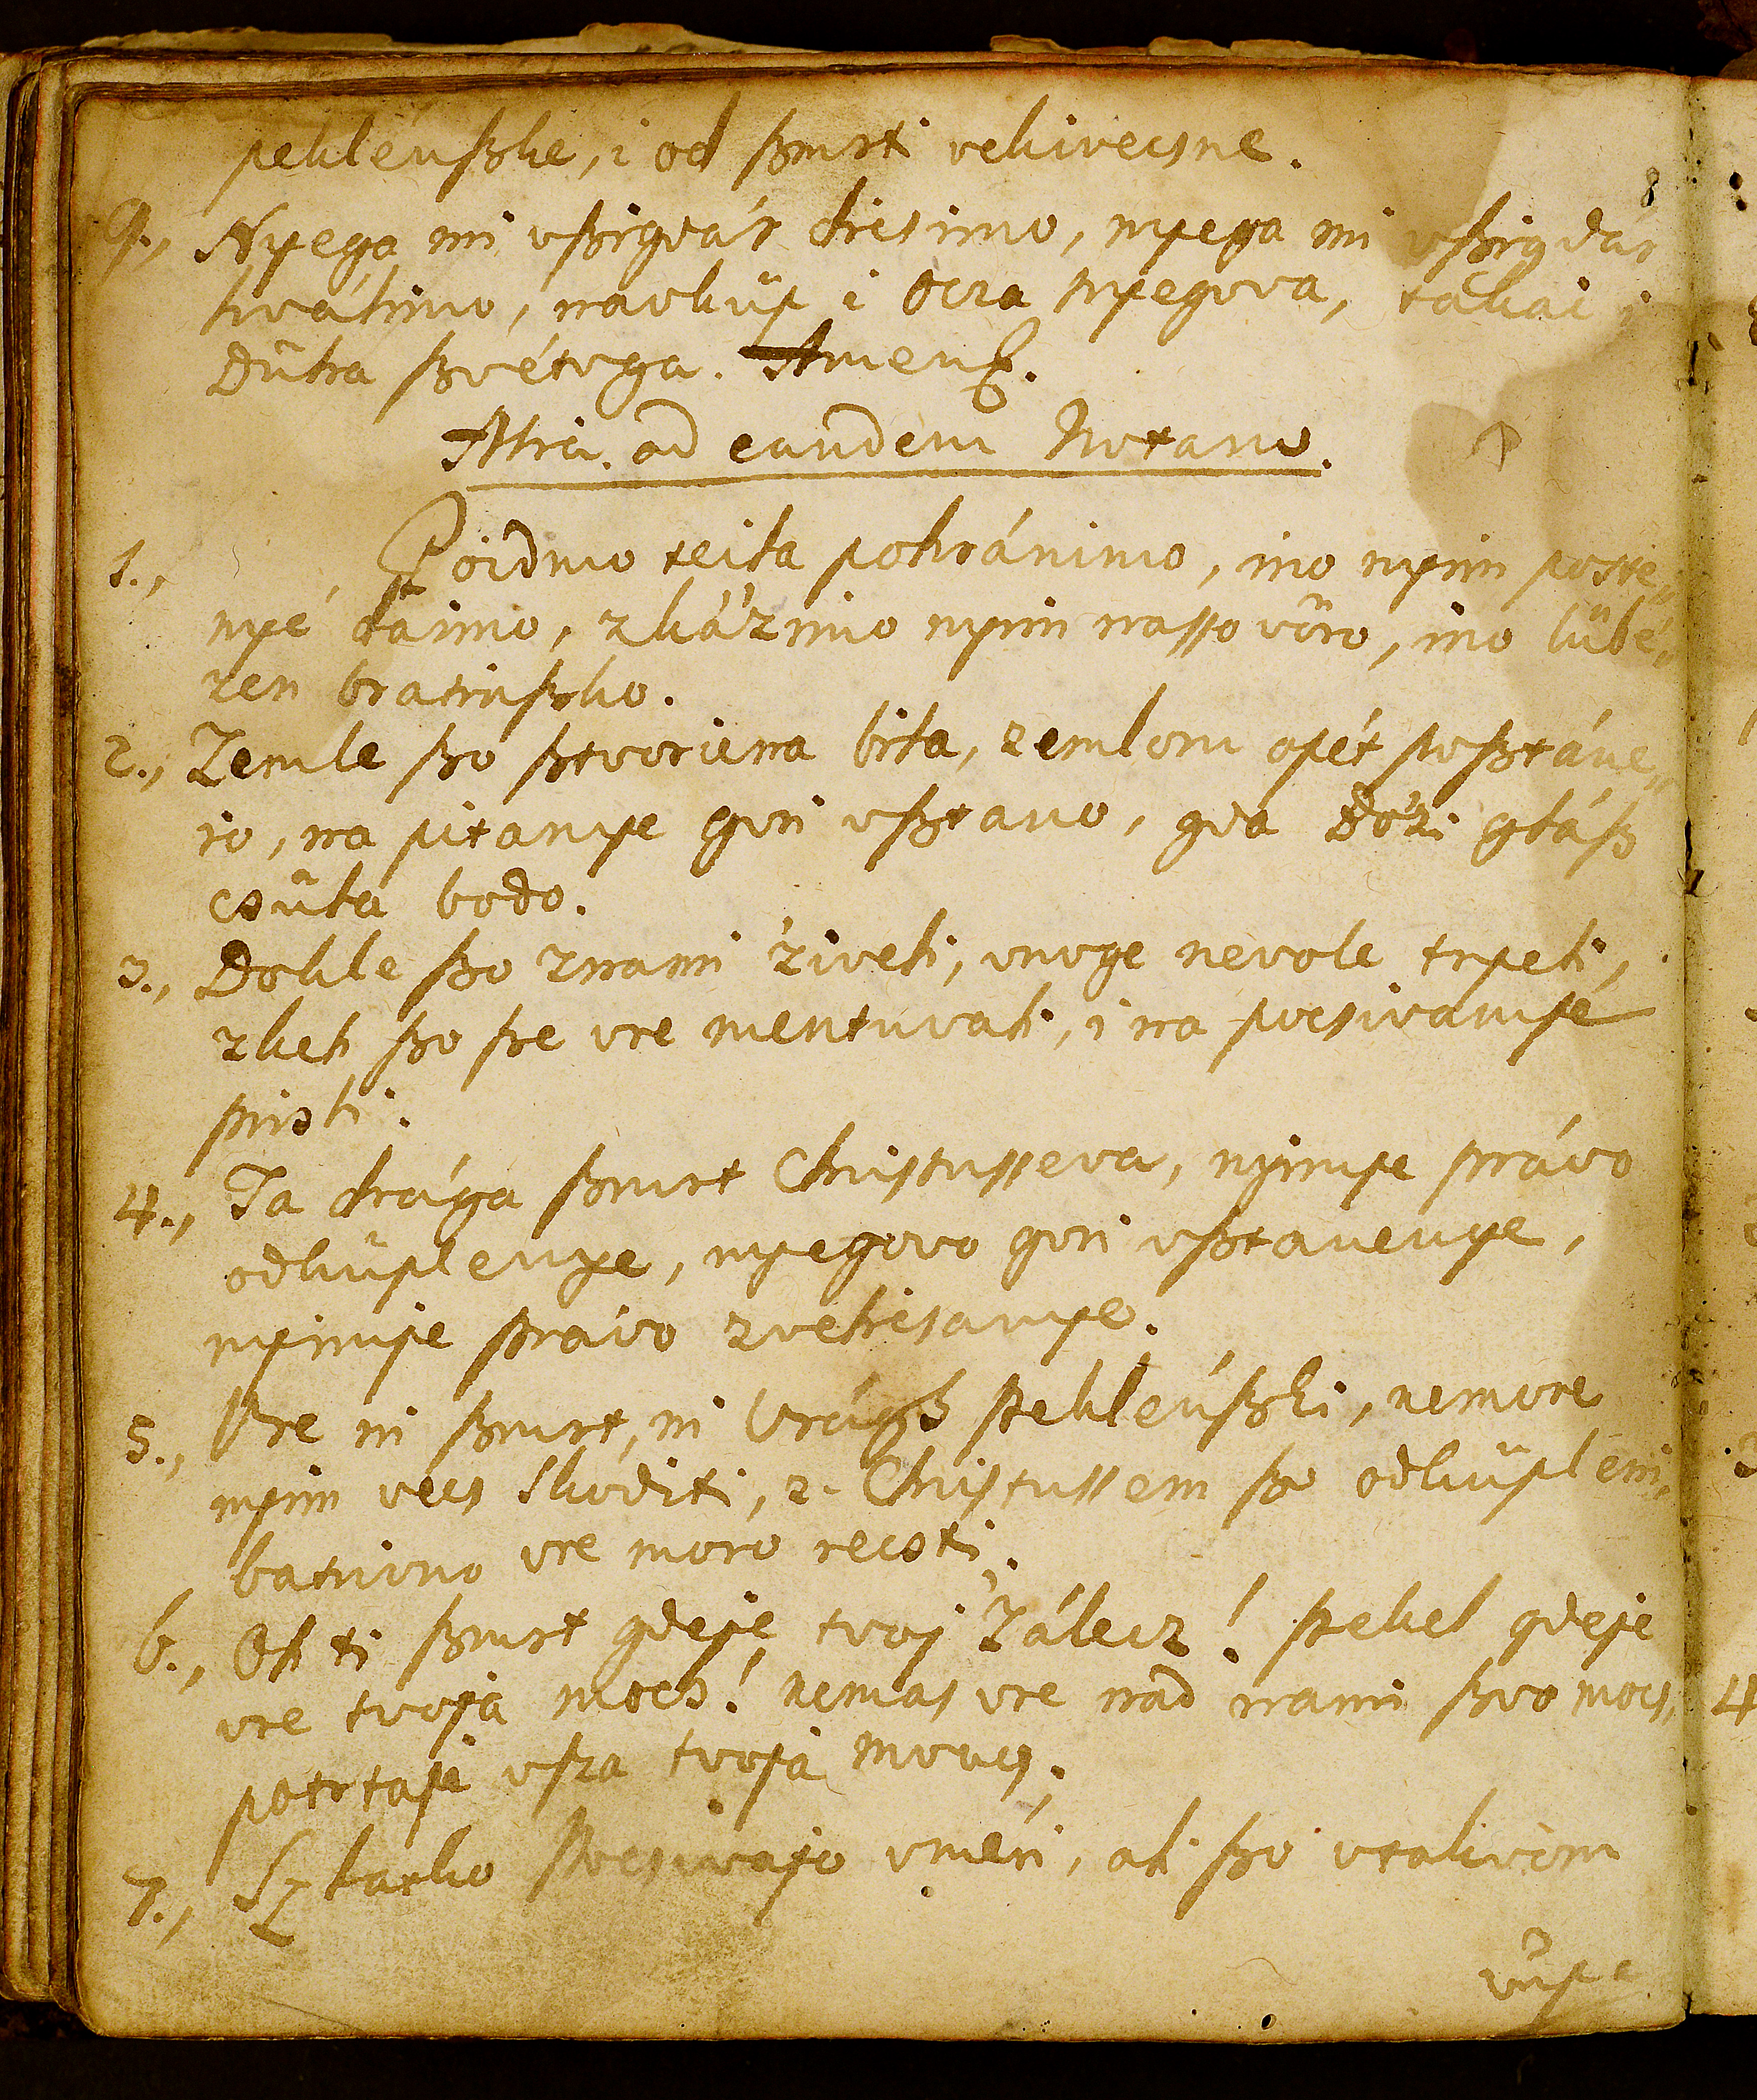 peklénſzke, i od ſzmrti vekivecsne.
9., Nyega mi vſzigdár dicsimo, nyega mi vſzigdár
hválimo, navküp i Ocza nyegova, takai i
Dûha ſzvétoga. Amen.
Alia. ad eandem Notam.
1., Poidmo teila pohránimo, ino nyim poste„
nyé daimo, zkáʼzimo nyim nasso vöro, ino lübé„
zen bratinſzko.
2., Zemle ſzo ſztvorjena bila, zemlom opét poſztáne„
jo, na pitanye gori vſztano, gda Bóʼzi gláſz
csûla bodo.
3., Dokle ſzo znami ʼziveli, vnoge nevole trpeli,
zkeh ſzo ſze vre mentuvali, i na pocsivanyé
prisli.
4., Ta drága ſzmrt Chriſtuſſeva, nyimje právo
odküplenye, nyegovo gori vſztanenye,
nyimje právo zvelicsanye.
5., Vre ni ſzmrt, ni Vrágh peklénſzki, nemore
nyim vecs skoditi, z. Chriſtuſſem ſzo odküpleni,
batrivno vre moro recsti.
6., Oh ti ſzmrt gdeje tvoj Zálecz! pekel gdeje
vre tvoja mocs! nemas vre nad nami ſzvo mocs,
potrtaje vſza tvoja mocs.
7., Szlatko pocsivajo vméri, ali ſzo vtakivom
8